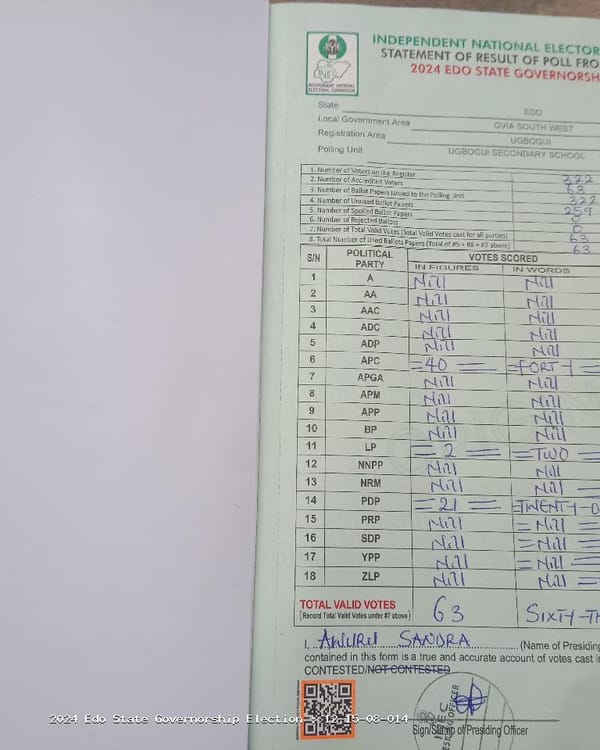 INDEPENDENT NATIONAL ELECTOR
STATEMENT OF RESULT OF POLL FRO
2024 EDO STATE GOVERNORSH
INEC
INDEPENDENT NATIONAL
ELECTORAL COMMISSION
State EDO
Local Government Area OVIA SOUTH WEST
Registration Area UGBOGUI
Polling Unit UGBOGUI SECONDARY SCHOOL
1. Number of Voters on the Register 322
2. Number of Accredited Voters 63
3. Number of Ballot Papers Issued to the Polling Unit 322
4. Number of Unused Ballot Papers 259
5. Number of Spoiled Ballot Papers 0
6. Number of Rejected Ballots 0
7. Number of Total Valid Votes (Total Valid Votes cast for all parties) 63
8. Total Number of Used Ballots Papers (Total of #5 + #6 + #7 above) 63
S/N POLITICAL PARTY VOTES SCORED
IN FIGURES IN WORDS
1 A Nill Nill
2 AA Nill Nill
3 AAC Nill Nill
4 ADC Nill Nill
5 ADP Nill Nill
6 APC =40= =FORTY=
7 APGA Nill Nill
8 APM Nill Nill
9 APP Nill Nill
10 BP Nill Nill
11 LP =2= =TWO=
12 NNPP Nill Nill
13 NRM Nill Nill
14 PDP =21= =TWENTY-O
15 PRP Nill =Nill=
16 SDP Nill =Nill=
17 YPP Nill =Nill=
18 ZLP Nill Nill=
TOTAL VALID VOTES 63 SIXTY-TH
(Record Total Valid Votes under #7 above)
I, AWURU SANDRA (Name of Presiding
contained in this form is a true and accurate account of votes cast i
CONTESTED/NOT CONTESTED
Sign/Stamp of Presiding Officer
2024 Edo State Governorship Election - 12-15-08-014